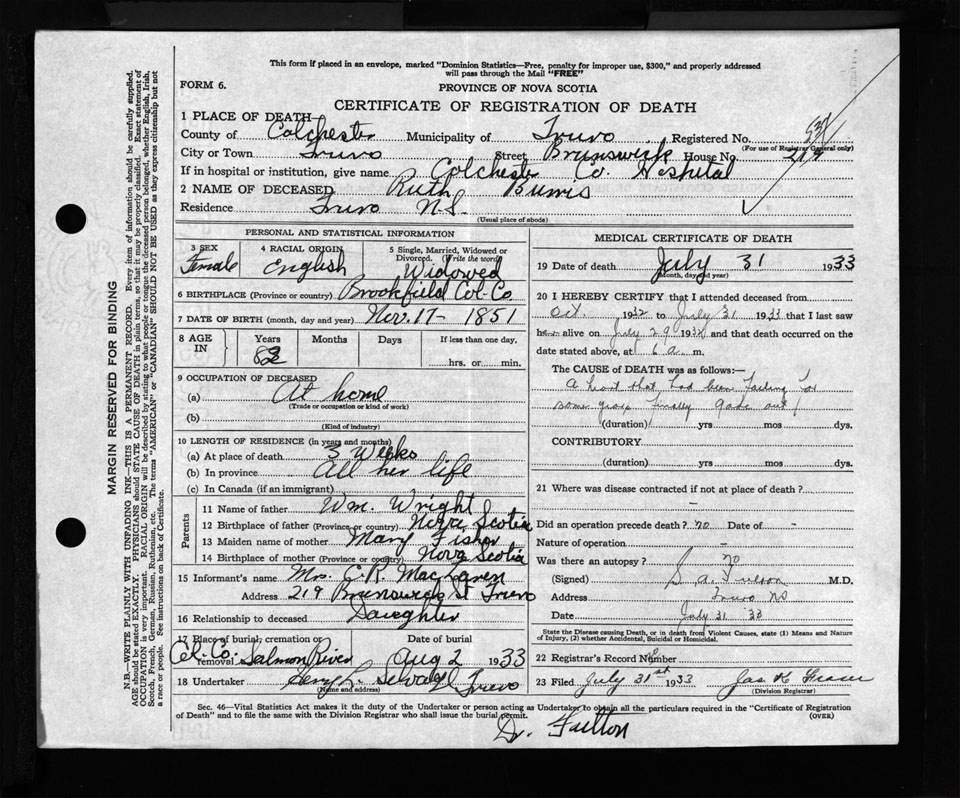 This form if placed in an envelope, marked "Dominion Statistics—Free, penalty for improper use, $300," and properly addressed
will pass through the Mail "FREE"
FORM 6.
PROVINCE OF NOVA SCOTIA
CERTIFICATE OF REGISTRATION OF DEATH
1 PLACE OF DEATH
County of Colchester Municipality of Truro Registered No.
(For use of Registrar General only)
City or Town Truro Street Brunswick House No. 219
If in hospital or institution, give name Colchester Co. Hospital
2 NAME OF DECEASED Ruth Burris
Residence Truro N.S.
(Usual place of abode)
PERSONAL AND STATISTICAL INFORMATION
3 SEX Female
4 RACIAL ORIGIN English
5 Single, Married, Widowed or Divorced. (Write the word) Widowed
6 BIRTHPLACE (Province or country) Brookfield Col. Co.
7 DATE OF BIRTH (month, day and year) Nov. 17- 1851
8 AGE IN Years Months Days If less than one day,
hrs. or min.
9 OCCUPATION OF DECEASED
(a) At home
(Trade or occupation or kind of work)
(b)
(Kind of industry)
10 LENGTH OF RESIDENCE (in years and months)
(a) At place of death 3 Weeks
(b) In province All her life
(c) In Canada (if an immigrant)
Parents
11 Name of father Wm. Wright
12 Birthplace of father (Province or country) Nova Scotia
13 Maiden name of mother Mary Fisher
14 Birthplace of mother (Province or country) Nova Scotia
15 Informant's name Mrs. C. R. MacLaren
Address 219 Brunswick St Truro
16 Relationship to deceased Daughter
17 Place of burial, cremation or removal Col. Co. Salmon River
Date of burial Aug 2 1933
18 Undertaker Truro
(Name and address)
MEDICAL CERTIFICATE OF DEATH
19 Date of death July 31 1933
(Month, day and year)
20 I HEREBY CERTIFY that I attended deceased from
Oct. 1932 to July 31 1933 that I last saw
her alive on July 29 and that death occurred on
date stated above, at 6 a m.
The CAUSE OF DEATH was as follows:—
A heart that had been failing for
some finally gave out
(duration) yrs mos dys.
CONTRIBUTORY
(duration) yrs mos dys.
21 Where was disease contracted if not at place of death?
Did an operation precede death? no Date of -
Nature of operation -
Was there an autopsy? no
(Signed) M.D.
Address Truro NS
Date July 31 33
State the Disease causing Death, or in death from Violent Causes, state (1) Means and Nature
of Injury, (2) whether Accidental, Suicidal or Homicidal.
22 Registrar's Record Number
23 Filed July 31st 1933 Jas K Fraser
(Division Registrar)
Sec. 46—Vital Statistics Act makes it the duty of the Undertaker or person acting as Undertaker to obtain all the particulars required in the "Certificate of Registration
of Death" and to file the same with the Division Registrar who shall issue the burial permit.
(OVER)
Dr. Fulton
MARGIN RESERVED FOR BINDING
N.B.—WRITE PLAINLY WITH UNFADING INK—THIS IS A PERMANENT RECORD. Every item of information should be carefully supplied.
AGE should be stated EXACTLY. PHYSICIANS should STATE CAUSE OF DEATH in plain terms, so that it may be properly classified. Exact statement of
OCCUPATION is very important. RACIAL ORIGIN will be described by stating to what people or tongue the deceased person belonged, whether English, Irish,
Scotch, French, German, Russian, Ruthenian, etc. The terms "AMERICAN" or "CANADIAN" SHOULD NOT BE USED as they express citizenship but not
a race or people. See instructions on back of Certificate.